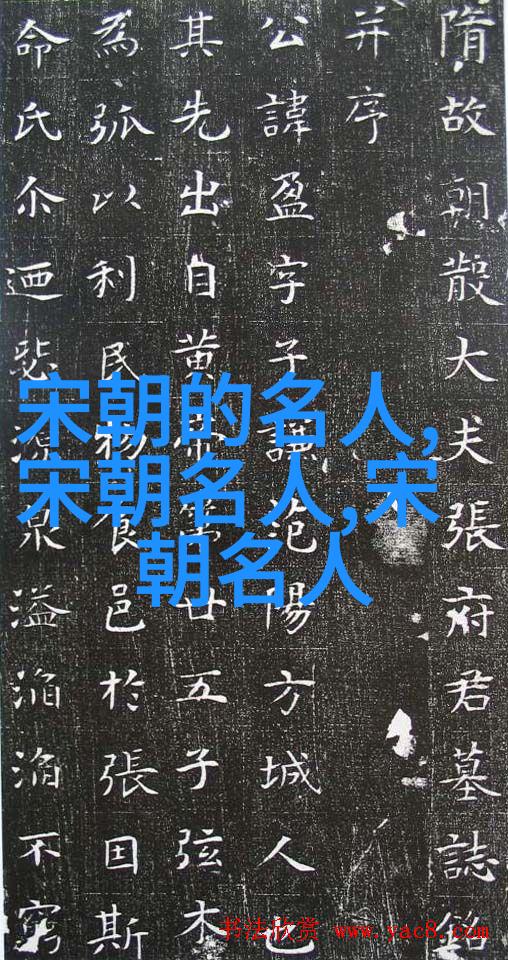 隋故朝散大夫張府君墓誌銘
并序
公諱盈字子謙范陽方城人也
其先出自黄帝第廿五子弦木
為弧以利民物食邑於張囙斯
命氏尒迺源泉溢滔滔不窮
宋朝的名人,
宋朝名人,宋
朝名人
书法欣赏 www.yac8.com